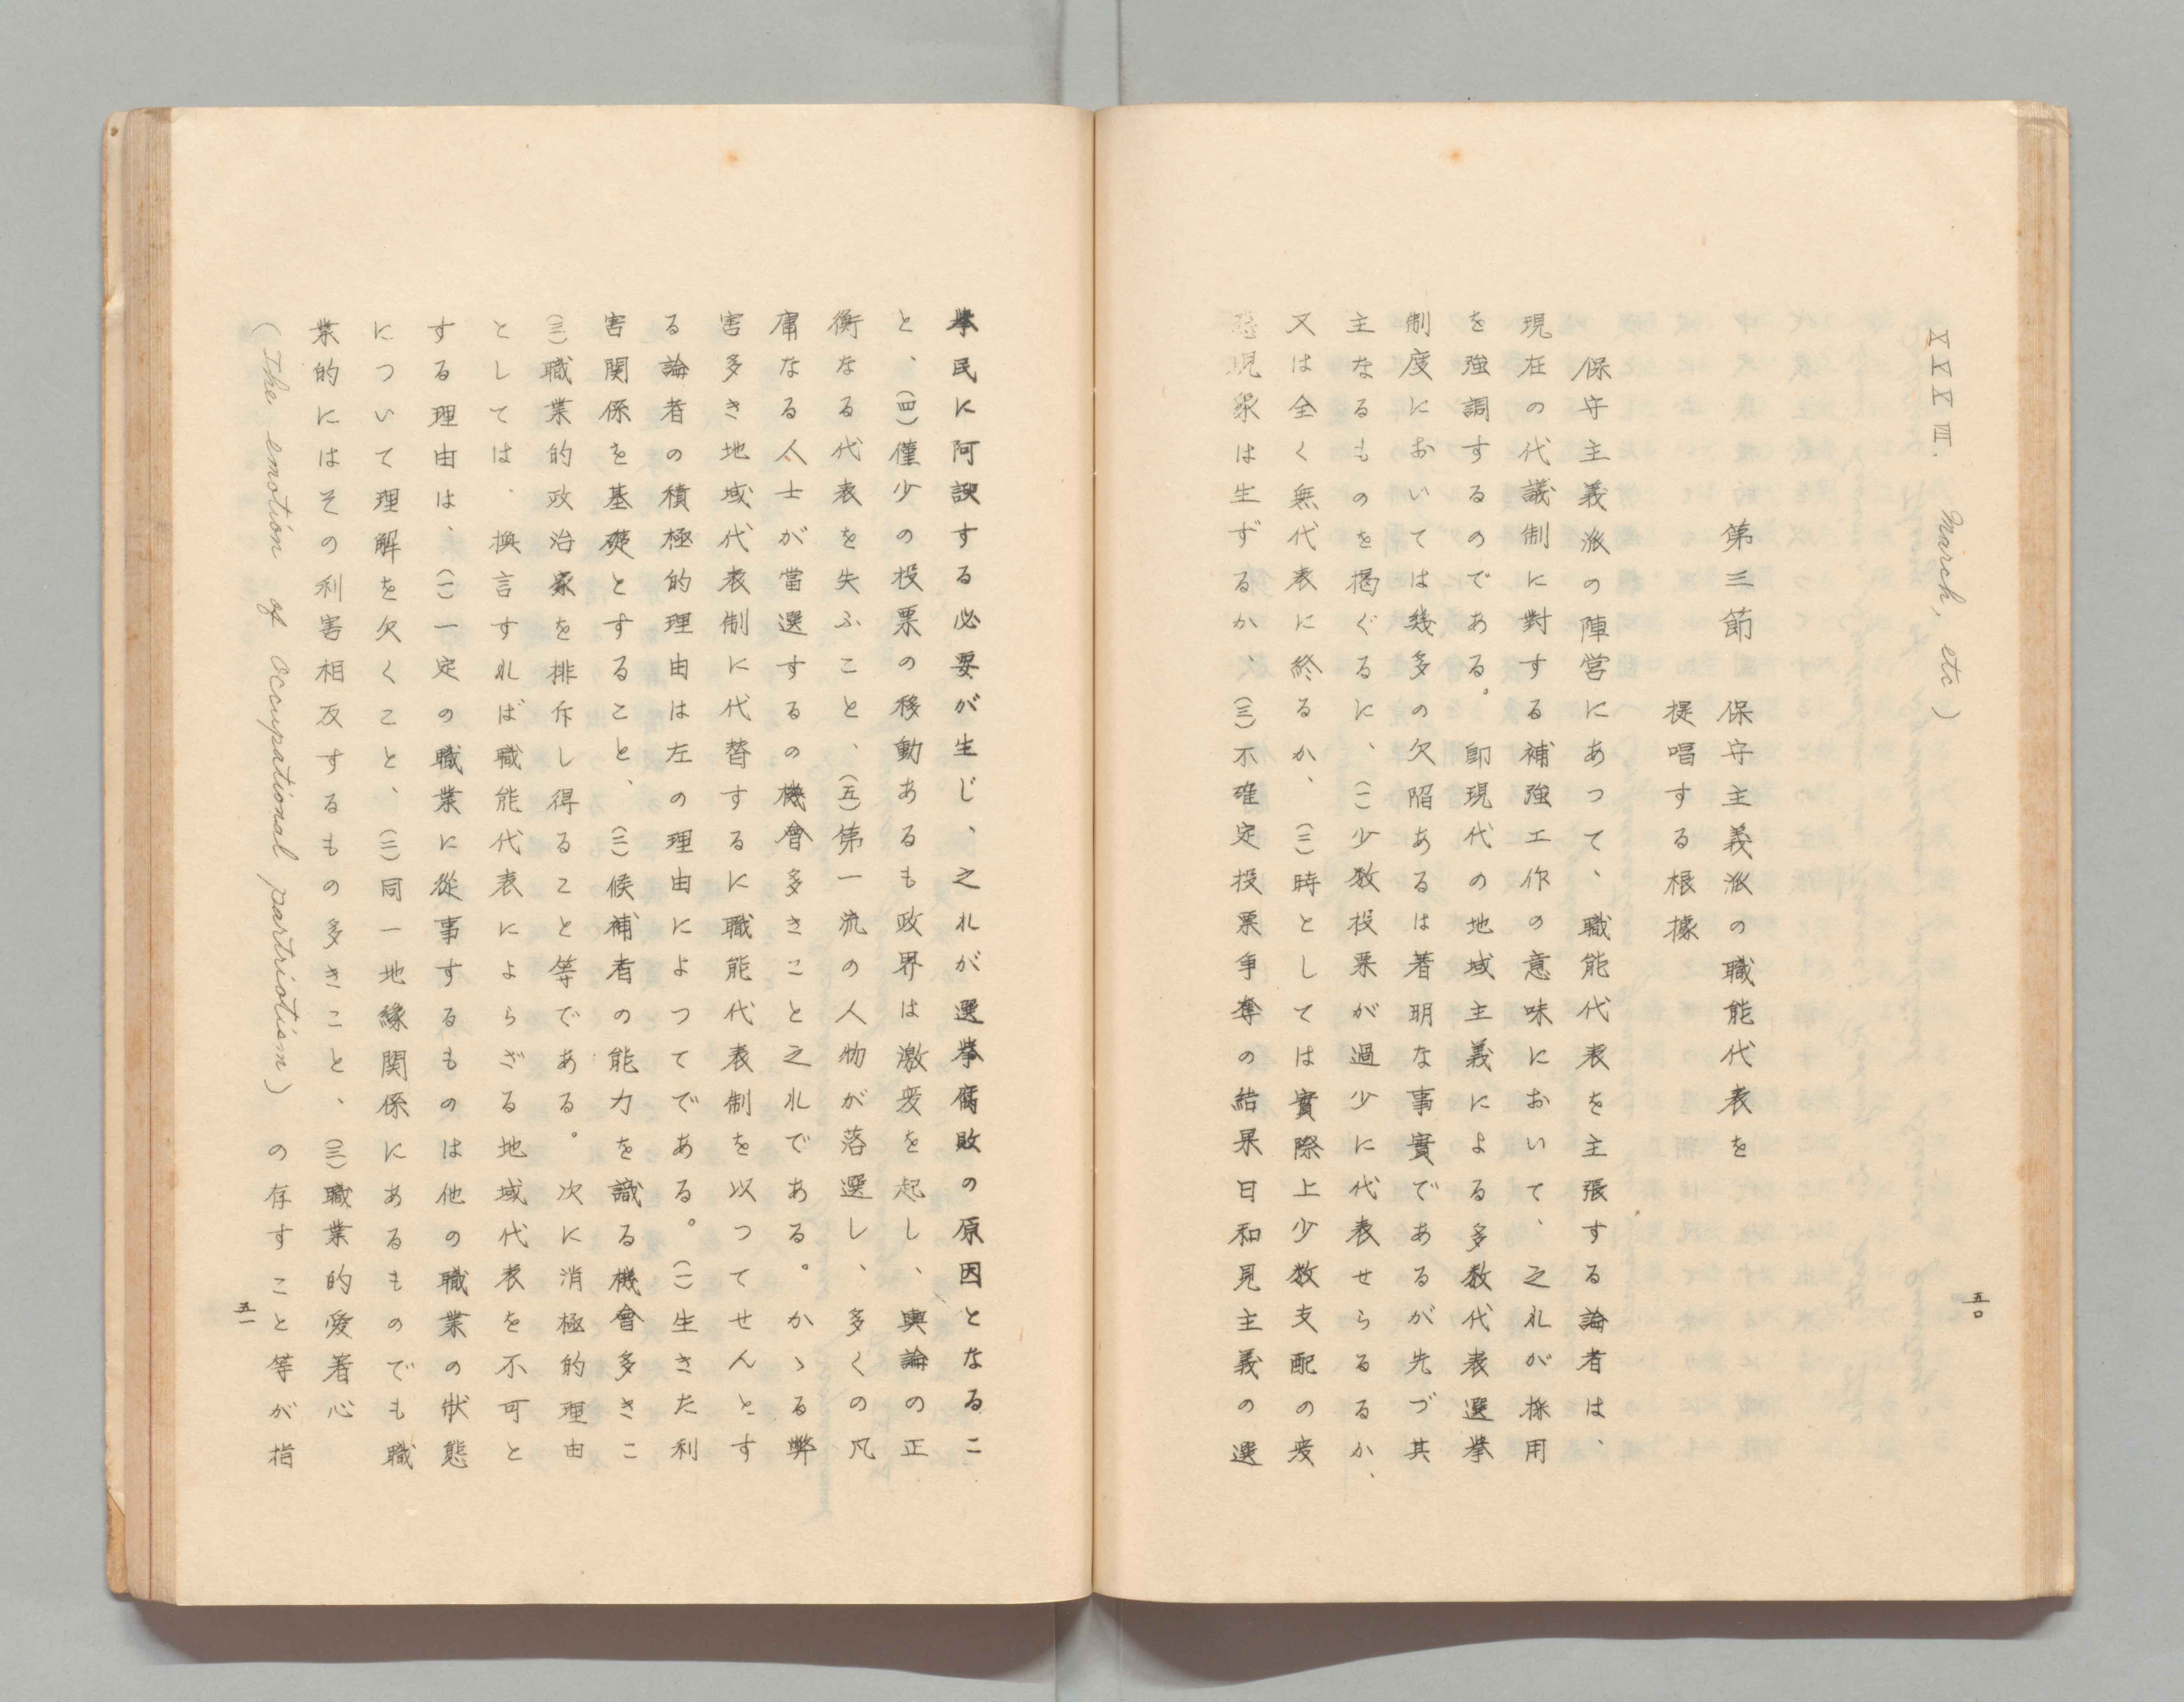 XXXIII. March, etc)
第三節 保守主義派の職能代表を
提唱する根據
保守主義派の陣営にあって、職能代表を主張する論者は、
現在の代議制に對する補強工作の意味において、之れが採用
を強調するのである。即現代の地域主義による多数代表選挙
制度においては幾多の欠陥あるは著明な事實であるが先づ其
主なるものを掲ぐるに、(一)少数投票が過少に代表せらるるか、
又は全く無代表に終るか、(二)時としては實際上少数支配の変
現象は生ずるか、(三)不確定投票争奪の結果日和見主義の選
五〇
挙民に阿諛する必要が生じ、之れが選挙腐敗の原因となるこ
と、(四)僅少の投票の移動あるも政界は激変を起し、輿論の正
衡なる代表を失ふこと、(五)第一流の人物が落選し、多くの凡
庸なる人士が當選するの機會多きこと之れである。かゝる弊
害多き地域代表制に代替するに職能代表制を以つてせんとす
る論者の積極的理由は左の理由によつてである。(一)生きた利
害関係を基礎とすること、(二)候補者の能力を識る機會多きこ
(三)職業的政治家を排斥し得ること等である。次に消極的理由
としては、換言すれば職能代表によらざる地域代表を不可と
する理由は、(一)一定の職業に從事するものは他の職業の狀態
について理解を欠くこと、(二)同一地縁関係にあるものでも職
業的にはその利害相反するもの多きこと、(三)職業的愛着心
(The emotion of Occupational partriotism) の存すこと等が指
五一